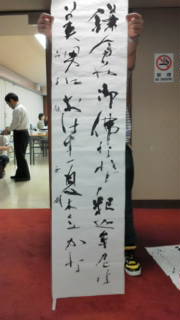 鎌倉や御佛なれど釈迦牟尼は
美男におはす夏木立かな